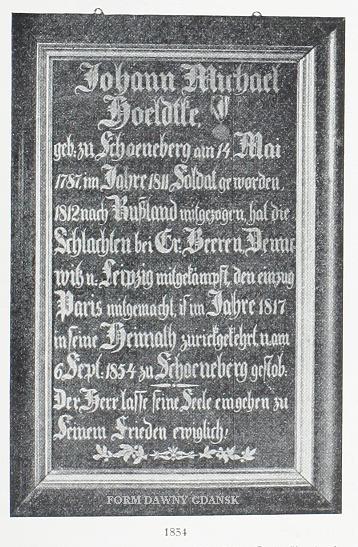 Johann Michael
Hoeldtke,
geb. zu Schoeneberg am 14 Mai
1787, im Jahre 1811 Soldat geworden,
1812 nach Rußland mitgezogen, hat die
Schlachten bei Gr: Beeren, Denne
witz u: Leipzig mitgekämpft, den einzug
Paris mitgemacht, is im Jahre 1817
in seine Heimath zurückgekehrt, u. am
6 Sept: 1854 zu Schoeneberg gestob:
Der Herr lasse seine Seele eingehen zu
Seinem Frieden ewiglich!
FORM DAWNY GDANSK
1854